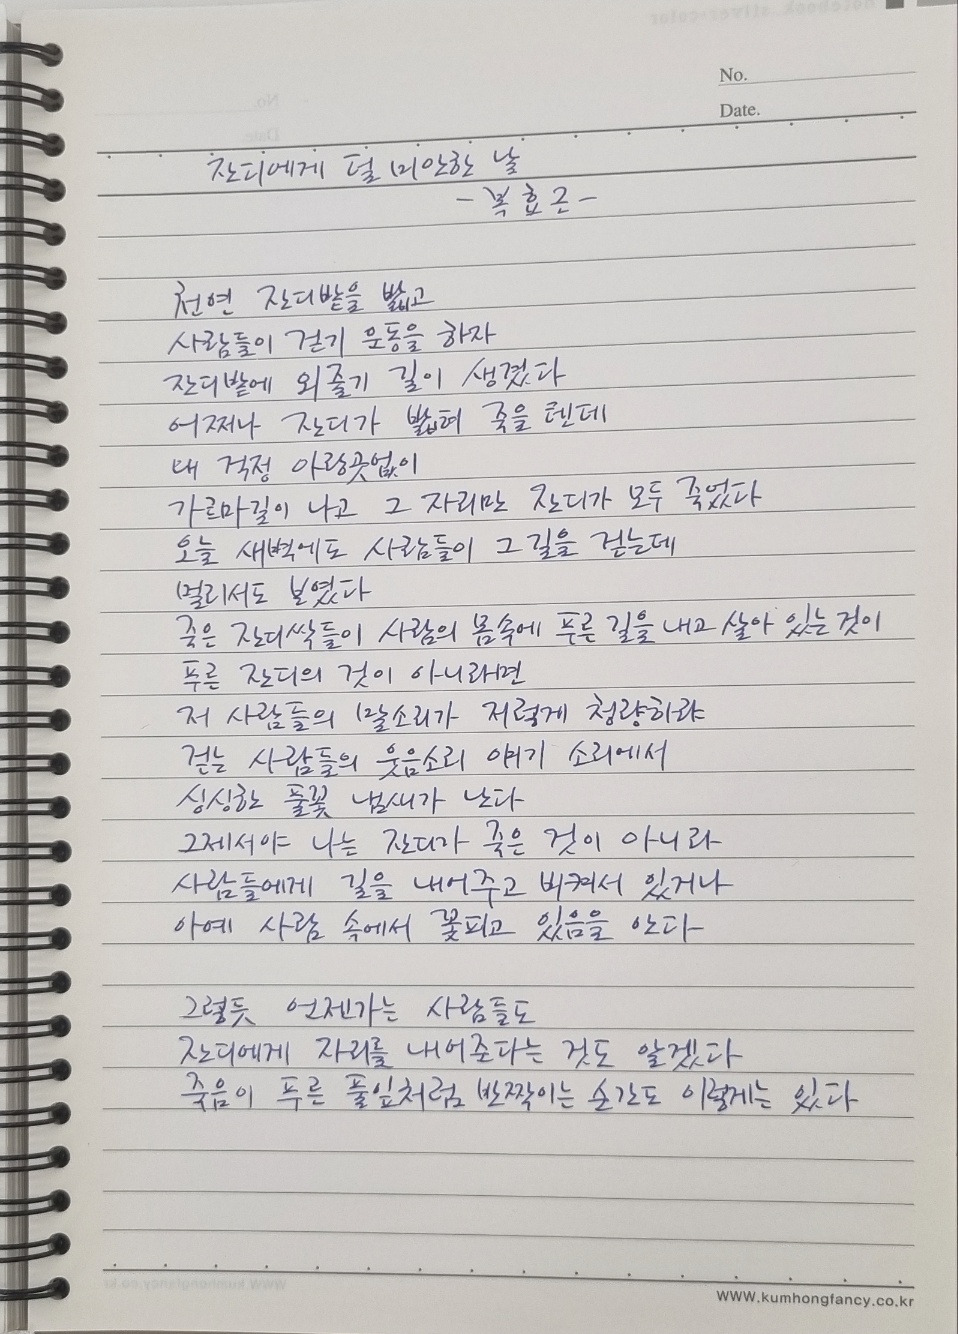 No.
Date.
잔디에게 덜 미안한 날
- 복효근 -
천연 잔디밭을 밟고
사람들이 걷기 운동을 하자
잔디밭에 외줄기 길이 생겼다
어쩌나 잔디가 밟혀 죽을 텐데
내 걱정 아랑곳없이
가르마길이 나고 그 자리만 잔디가 모두 죽었다
오늘 새벽에도 사람들이 그 길을 걷는데
멀리서도 보였다
죽은 잔디싹들이 사람의 몸속에 푸른 길을 내고 살아 있는 것이
푸른 잔디의 것이 아니라면
저 사람들의 말소리가 저렇게 청량하랴
걷는 사람들의 웃음소리 얘기 소리에서
싱싱한 풀꽃 냄새가 난다
그제서야 나는 잔디가 죽은 것이 아니라
사람들에게 길을 내어주고 비켜서 있거나
아예 사람 속에서 꽃피고 있음을 안다
그렇듯 언젠가는 사람들도
잔디에게 자리를 내어준다는 것도 알겠다
죽음이 푸른 풀잎처럼 반짝이는 순간도 이렇게는 있다
www.kumhongfancy.co.kr